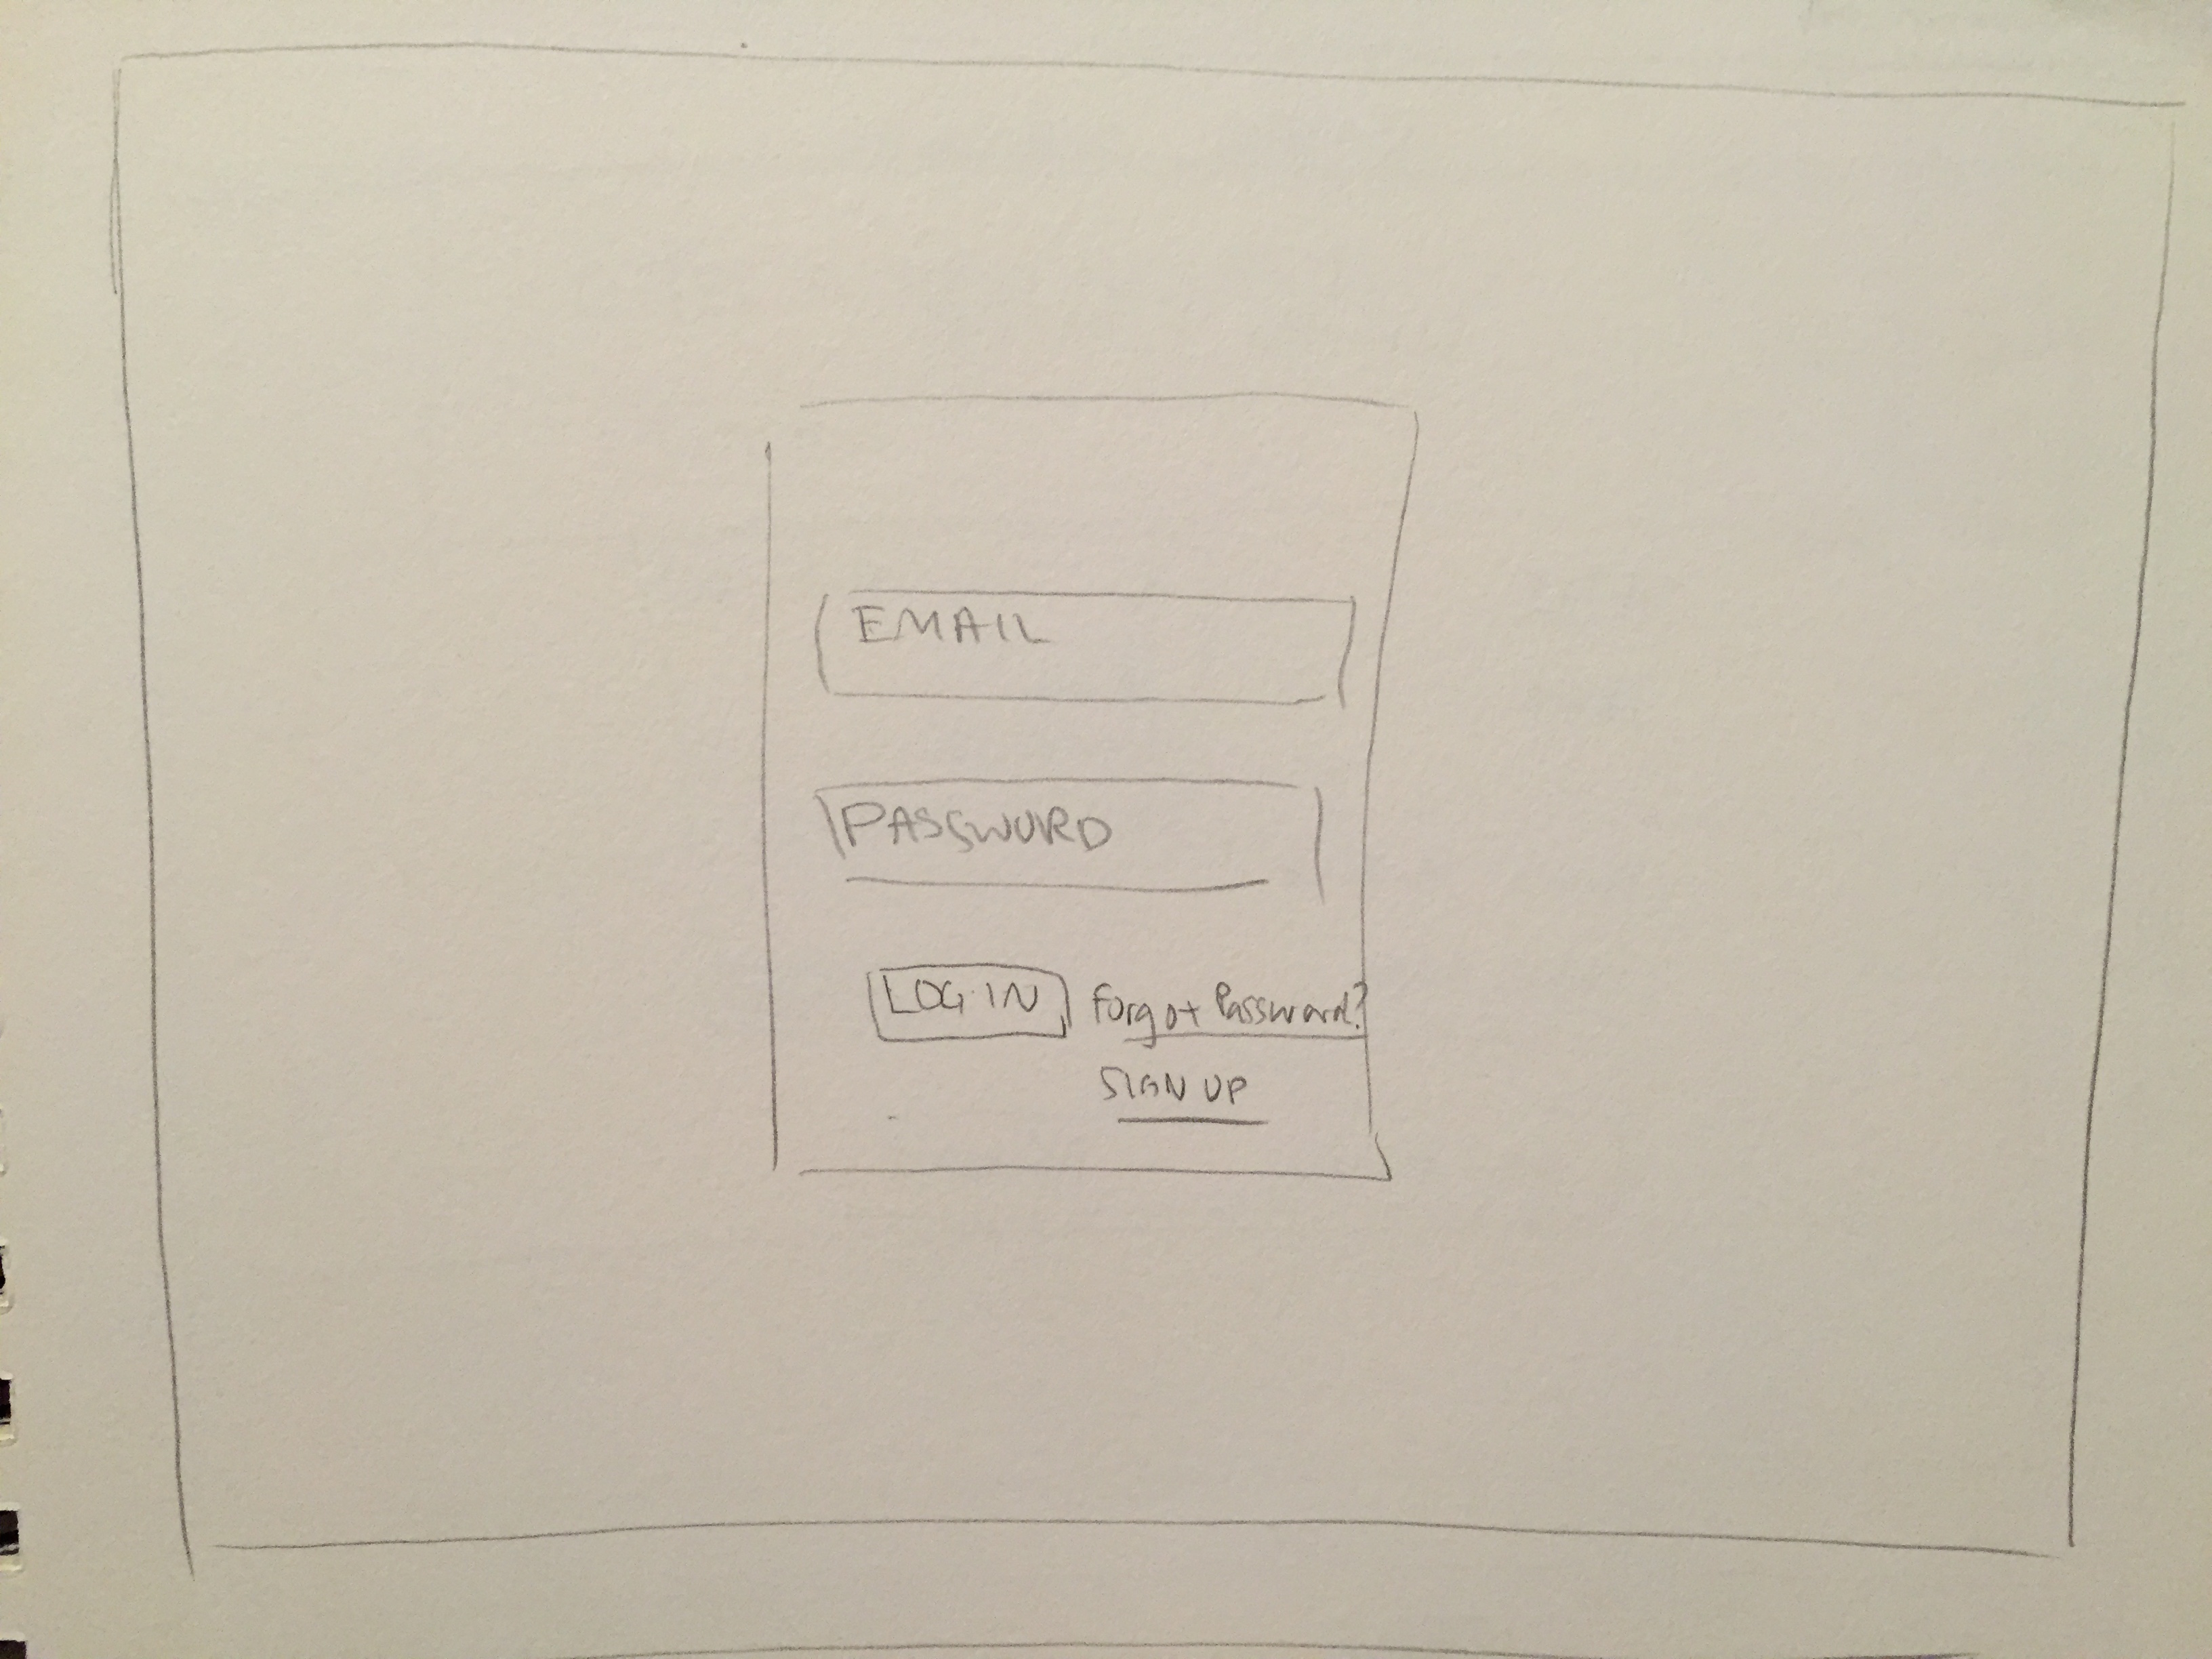 EMAIL
PASSWORD
LOG IN
Forgot Password?
SIGN UP